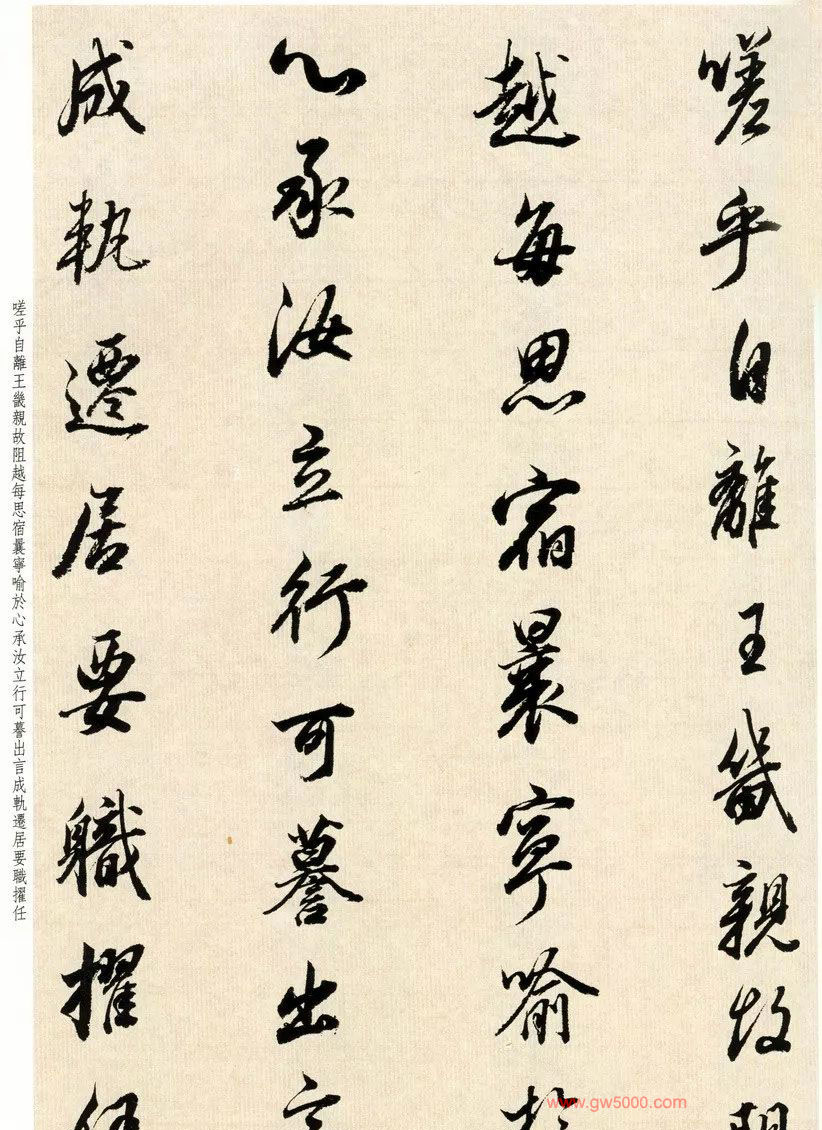 嗟乎自離王畿親故阻
越每思宿曩寧喻於
心承汝立行可謩出言
成軌遷居要職擢任
嗟乎自離王畿親故阻越每思宿曩寧喻於心承汝立行可謩出言成軌遷居要職擢任
www.gw5000.com